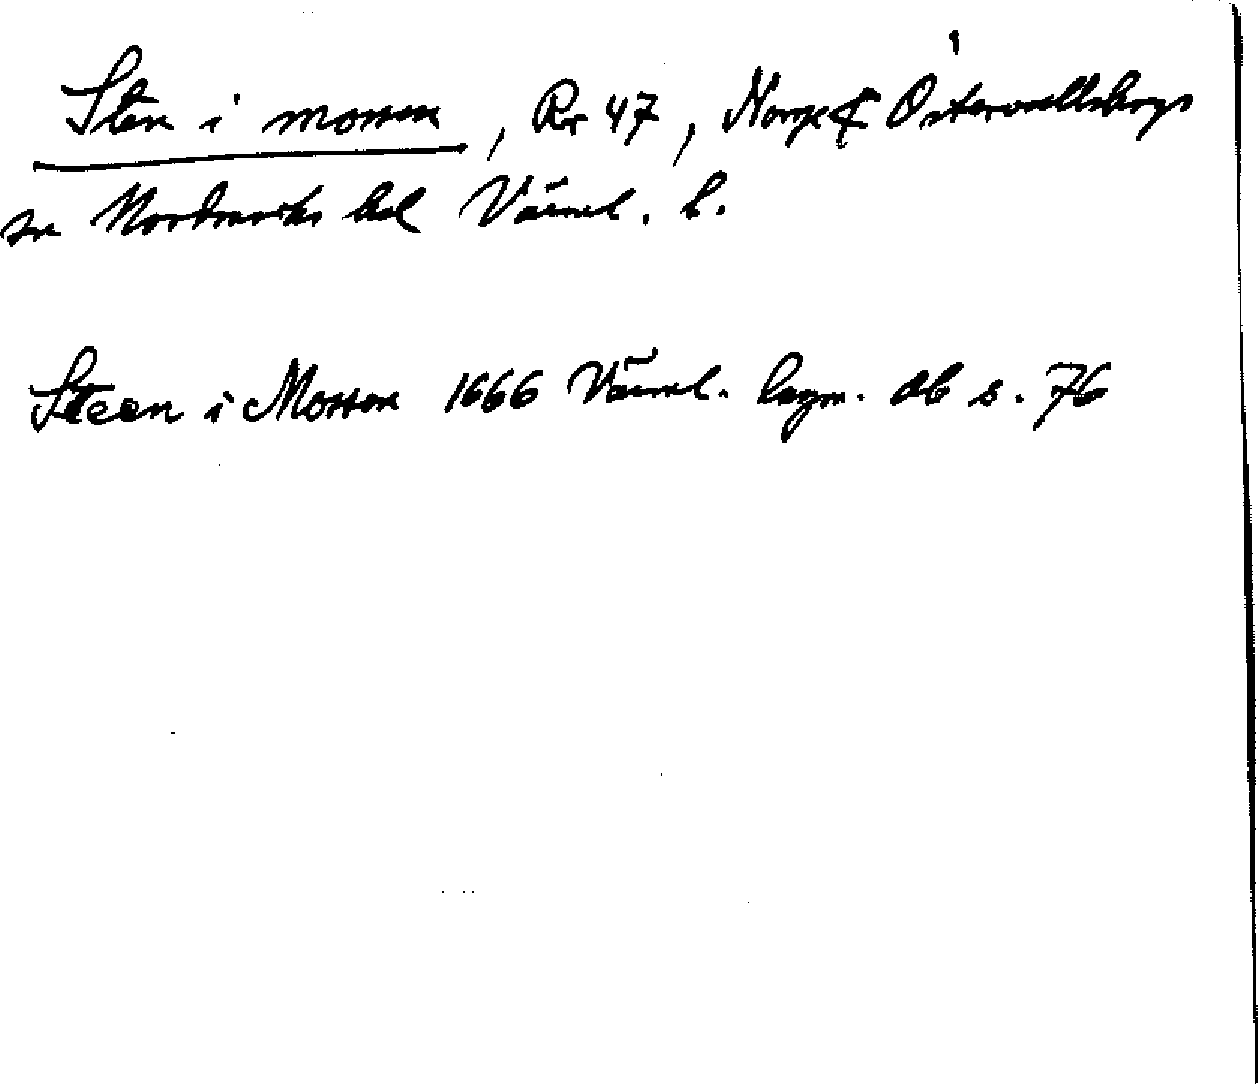 Sten i mossen, Rr 47, Norge & Östervallskogs
sn Nordmarks hd Värml. l.
Steen i Mossen 1666 Värml. hsgm. db s. 76